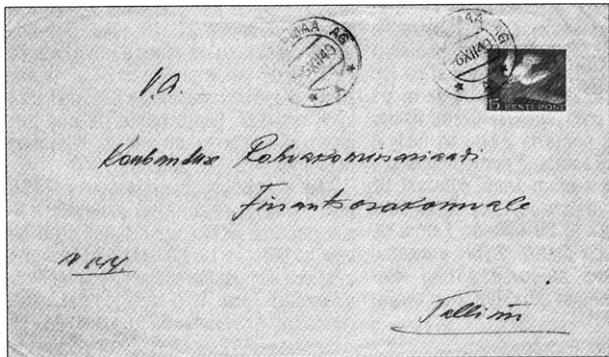 MAA AG
6XII40
A
MAA AG
6XII40
A
15 EESTI POST
V.A.
Kaubanduse Rahvakomissariaadi
Finantsosakonnale
Tallinn